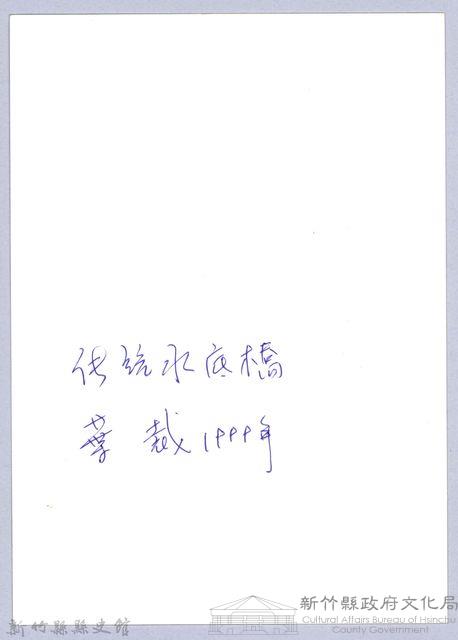 传統水底橋
葉 裁 1999年
新竹縣政府文化局
Cultural Affairs Bureau of Hsinchu
County Government
新竹縣縣史館